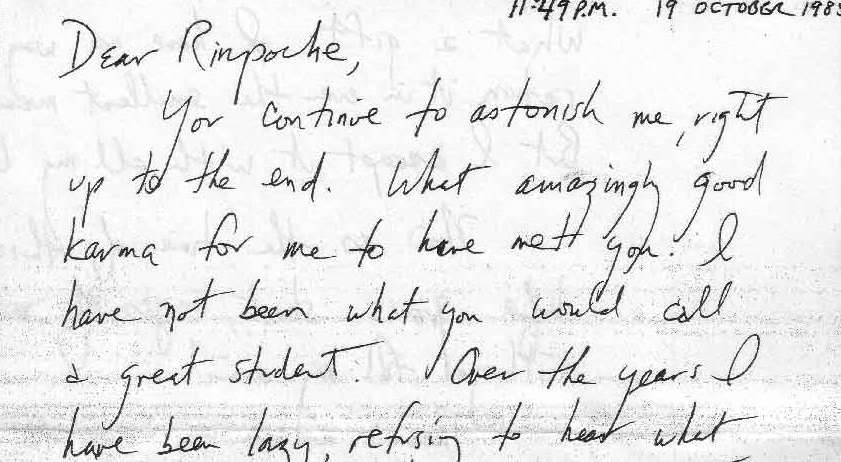 11:49 P.M. 19 OCTOBER 198
Dear Rinpoche,
You continue to astonish me, right
up to the end. What amazingly good
karma for me to have mett you. I
have not been what you would call
a great student. Over the years I
have been lazy, refusing to hear what